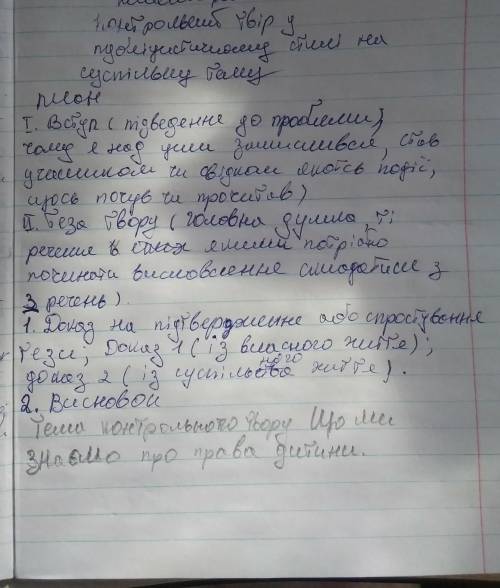 1. Контрольний твір у
публіцистичному стилі на
суспільну тему
план
I. Вступ (підведення до проблеми,
чому я над цим замислився, став
учасником чи свідком якоїсь події,
щось почув чи прочитав)
II. Теза твору (головна думка, ті
речення в яких якими потрібно
починати висловлення складатися з
3 речень).
1. Доказ на підтвердження або спростування
тези, Доказ 1 (із власного життя);
доказ 2 (із суспільного життя).
2. Висновок
Тема контрольного твору Що ми
знаємо про права дитини.